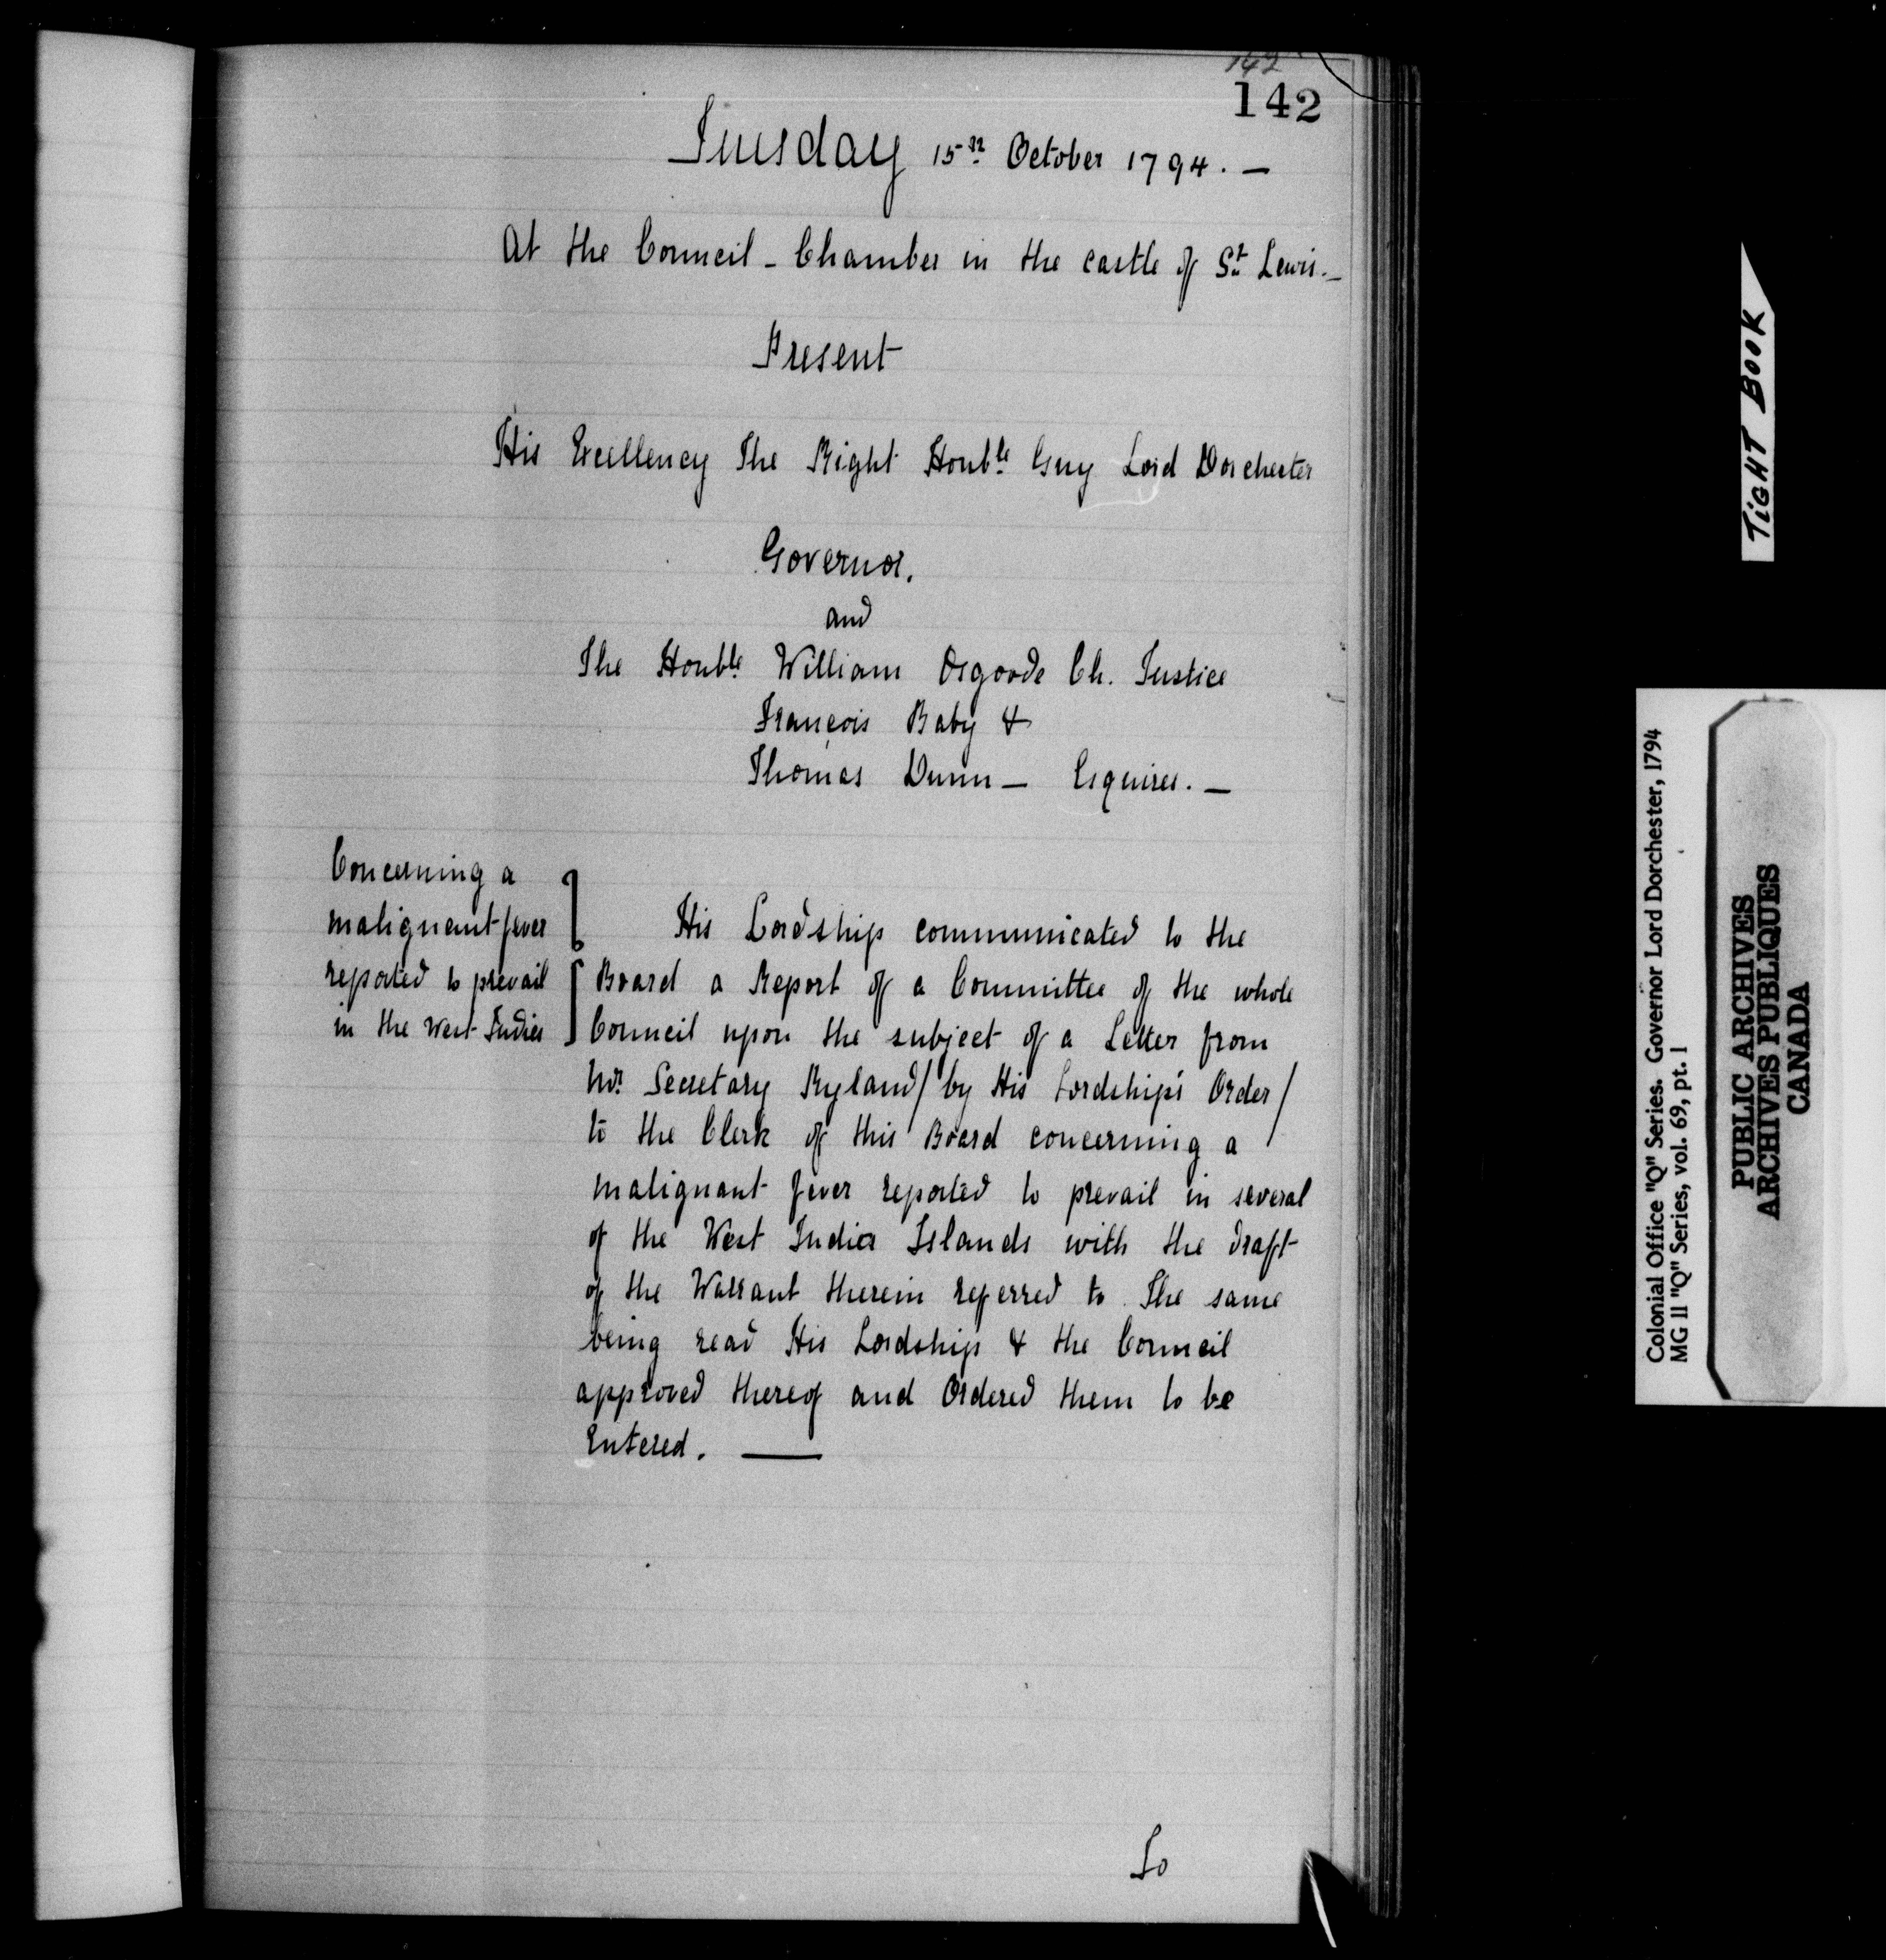 142
142
Tuesday 15th October 1794. —
At the Council - Chamber in the castle of St Lewis. —
Present
His Excellency The Right Honble Guy Lord Dorchester
Governor.
and
The Honble William Osgoode Ch. Justice
François Baby &
Thomas Dunn — Esquires. —
Concerning a
malignant fever
reported to prevail
in the West Indies
His Lordship communicated to the
Board a Report of a Committee of the whole
Council upon the subject of a Letter from
Mr. Secretary Ryland / by His Lordship's Order /
to the Clerk of this Board concerning a
malignant fever reported to prevail in several
of the West India Islands with the draft
of the Warrant therein referred to. The same
being read His Lordship & the Council
approved thereof and Ordered them to be
Entered. —
To
TIGHT BOOK
Colonial Office "Q" Series. Governor Lord Dorchester, 1794
MG 11 "Q" Series, vol. 69, pt. 1
PUBLIC ARCHIVES
ARCHIVES PUBLIQUES
CANADA